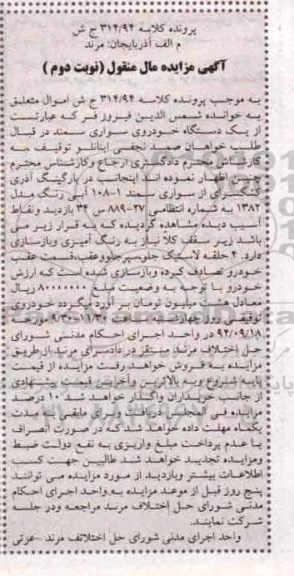 پرونده کلاسه ۳۱۴/۹۴ ج ش
م الف آذربایجان: مرند
آگهی مزایده مال منقول (نوبت دوم)
به موجب پرونده کلاسه ۳۱۴/۹۴ ج ش اموال متعلق
به خوانده شمس الدین فیروز فر که عبارتست
از یک دستگاه خودروی سواری سمند در قبال
طلب خواهان صمد نجفی اینانلو توقیف به
کارشناس محترم دادگستری ارجاع و کارشناس محترم
اظهار نموده اند اینجانب در پارکینگ آذری
از سواری سمند ۱-۱۰۸ آبی رنگ مدل
۱۳۸۲ به شماره انتظامی ۲۷-۸۸۹س۳۴ بازدید و نقاط
آسیب دیده مشاهده گردید که به قرار زیر می
باشد زیر سقف کلا نیاز به رنگ آمیزی و بازسازی
دارد. ۴ حلقه لاستیک جلو، سپر جلو و عقب، قسمت عقب
خودرو تصادف کرده و بازسازی شده است که ارزش
خودرو با توجه به وضعیت مبلغ ۸۰۰۰۰۰۰۰ ریال
معادل هشت میلیون تومان بر آورد میگردد خودروی
توقیفی روز چهارشنبه ساعت ۱۱:۳۰-۹:۳۰ مورخه
۹۴/۰۹/۱۸ در واحد اجرای احکام مدنی شورای
حل اختلاف مرند مستقر در دادسرای مرند از طریق
مزایده به فروش خواهد رفت مزایده از قیمت
پایه شروع و به بالاترین و آخرین قیمت پیشنهادی
از جانب خریداران واگذار خواهد شد ۱۰ درصد
مزایده فی المجلس دریافت و برای مابقی مدت
یکماه مهلت داده خواهد شد که در صورت انصراف
یا عدم پرداخت مبلغ واریزی به نفع دولت ضبط
و مزایده تجدید خواهد شد طالبین جهت کسب
اطلاعات بیشتر و بازدید از مورد مزایده می توانند
پنج روز قبل از موعد مزایده به واحد اجرای احکام
مدنی شورای حل اختلاف مرند مراجعه و در جلسه
شرکت نمایند.
واحد اجرای مدنی شورای حل اختلاف مرند -عزتی